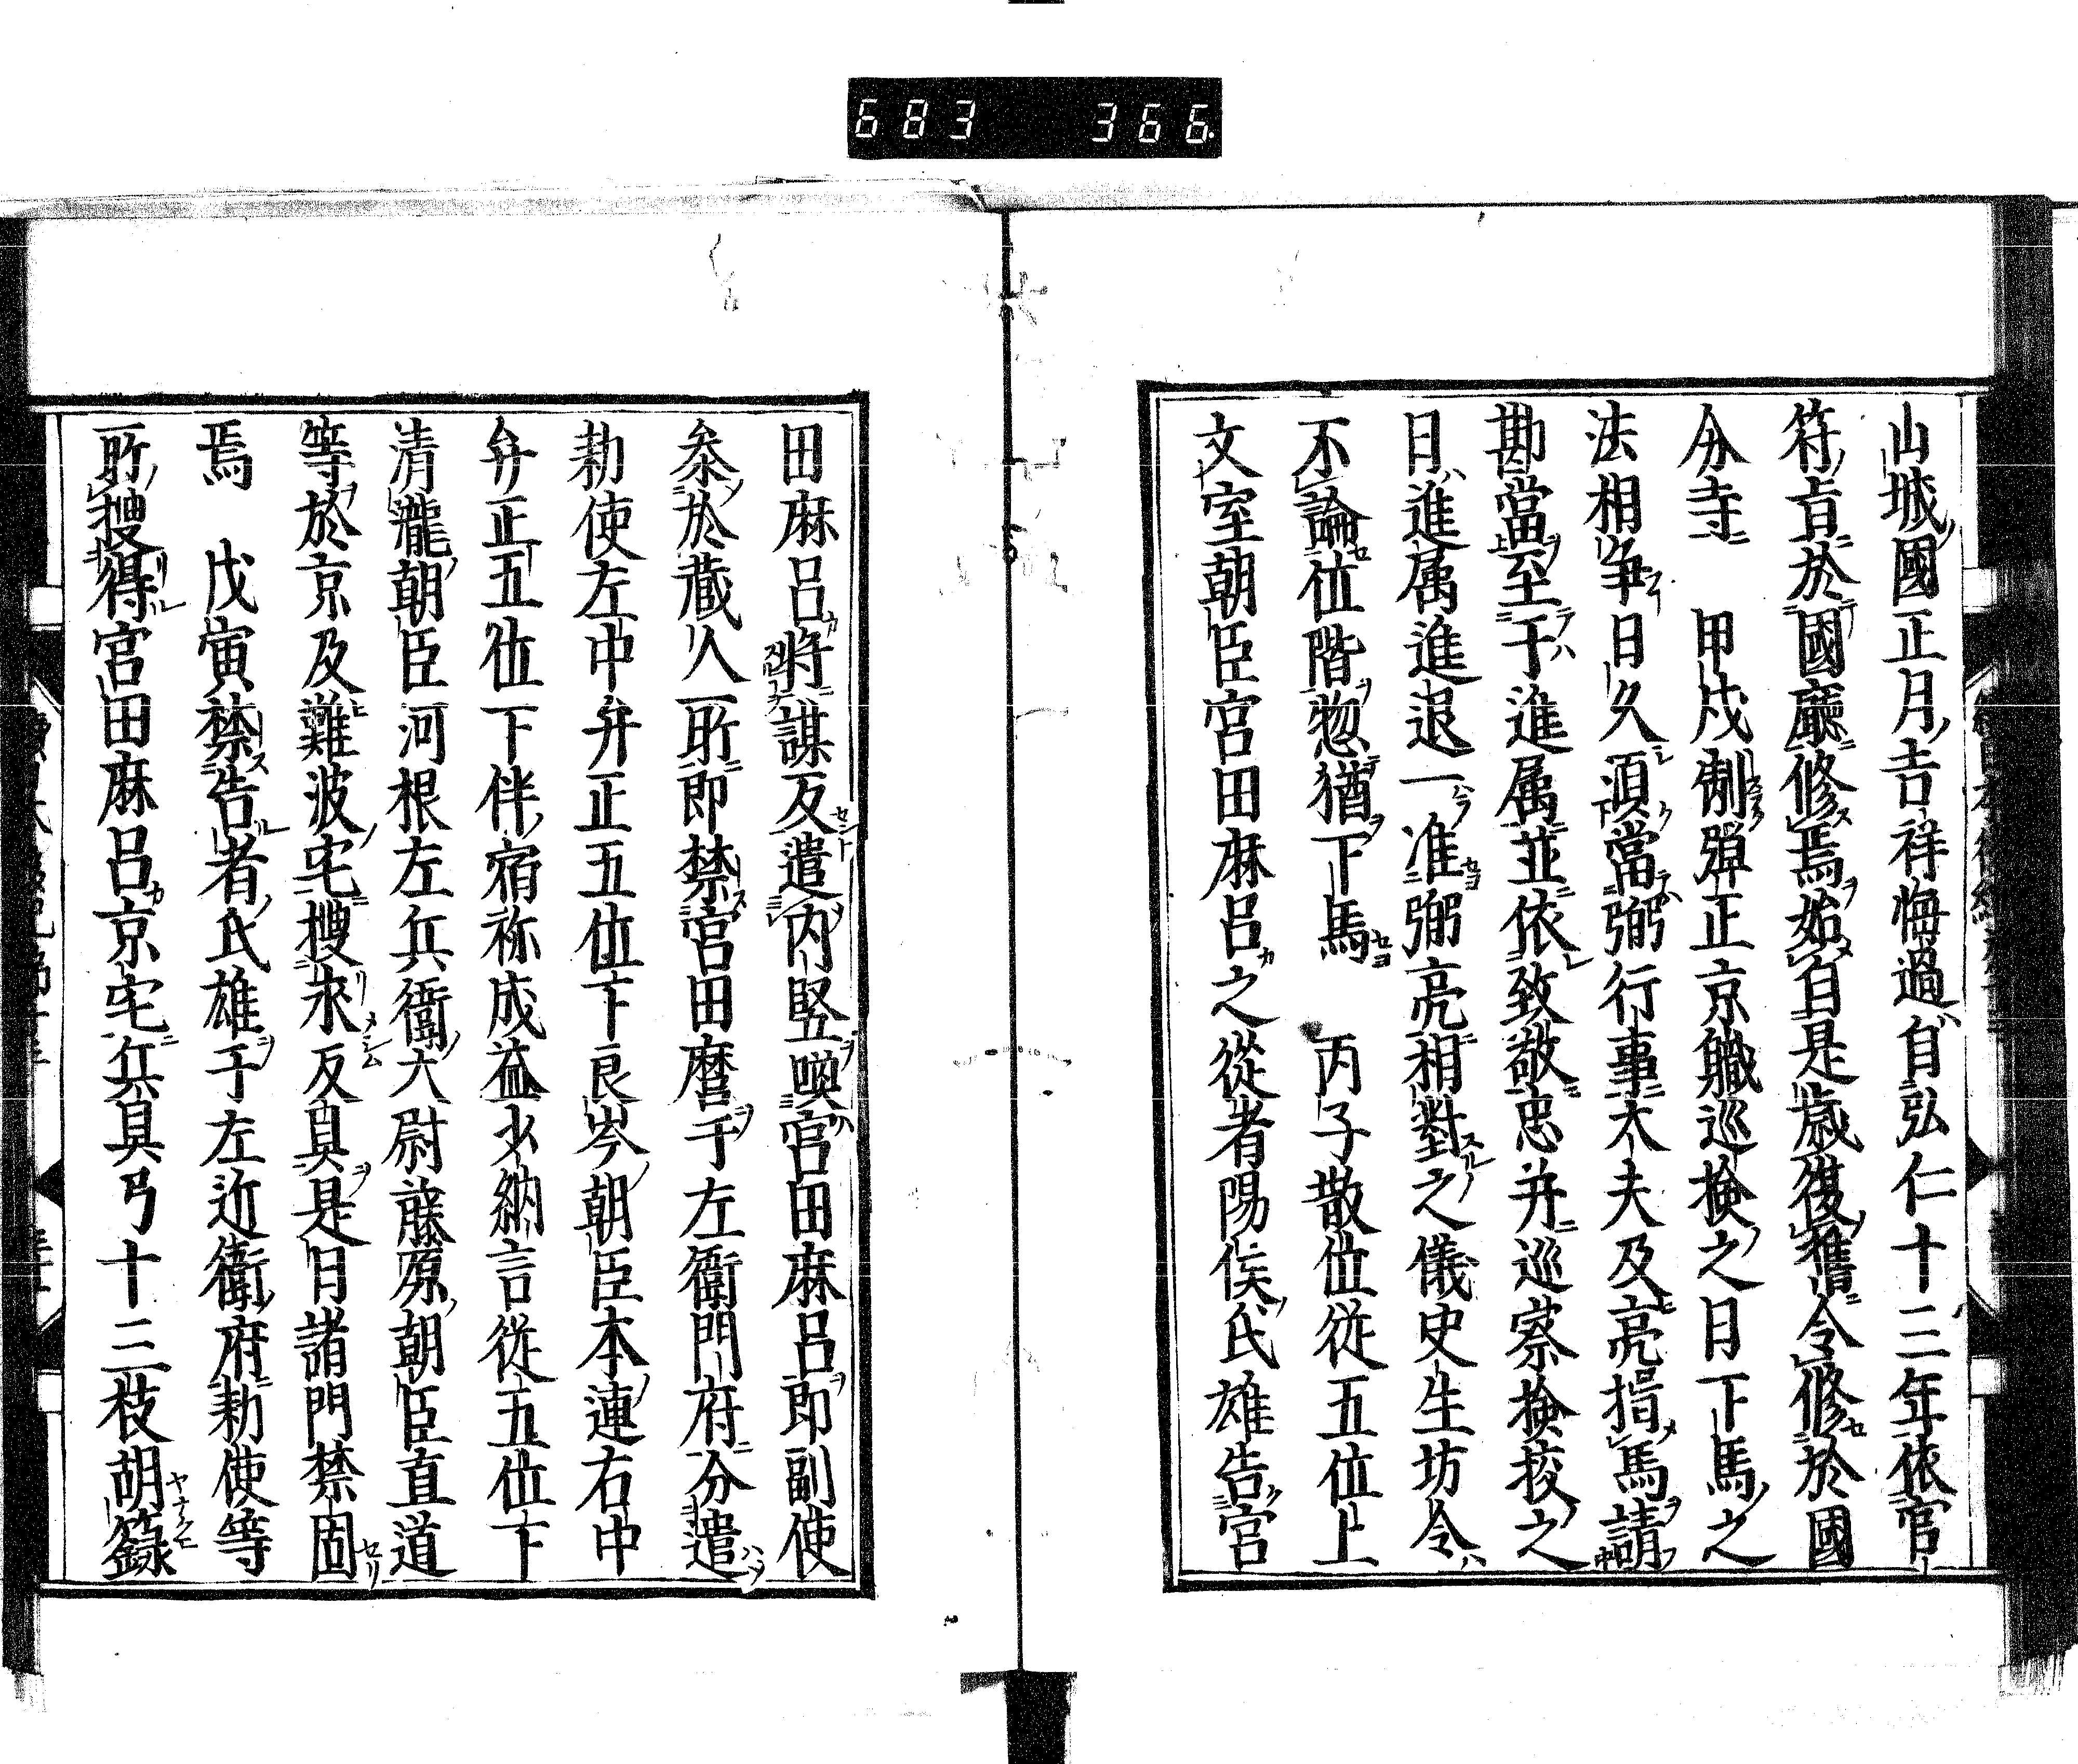 683 366
山城國正月吉祥悔過自弘仁十三年依官
符旨於國廳修焉始自是歳復舊令修於國
分寺 甲戌制彈正京職巡撿之日下馬之
法相争日久須當弼行事大夫及亮揖馬請
勘當至于進属並依致敬忠并巡察撿挍之
日進属進退一准弼亮相對之儀史生坊令
不論位階惣猶下馬 丙子散位從五位上
文室朝臣宮田麻呂之從者陽侯氏雄告宮
田麻呂將謀反遣内竪喚宮田麻呂即副使
参於蔵人所即禁宮田麿于左衛門府分遣
勅使左中弁正五位下良岑朝臣木連右中
弁正五位下伴宿祢成益少納言従五位下
清瀧朝臣河根左兵衛大尉藤原朝臣直道
等於京及難波宅搜求反具是日諸門禁固
焉 戊寅禁告者氏雄于左近衛府勅使等
所搜得宮田麻呂京宅兵具弓十三枝胡籙